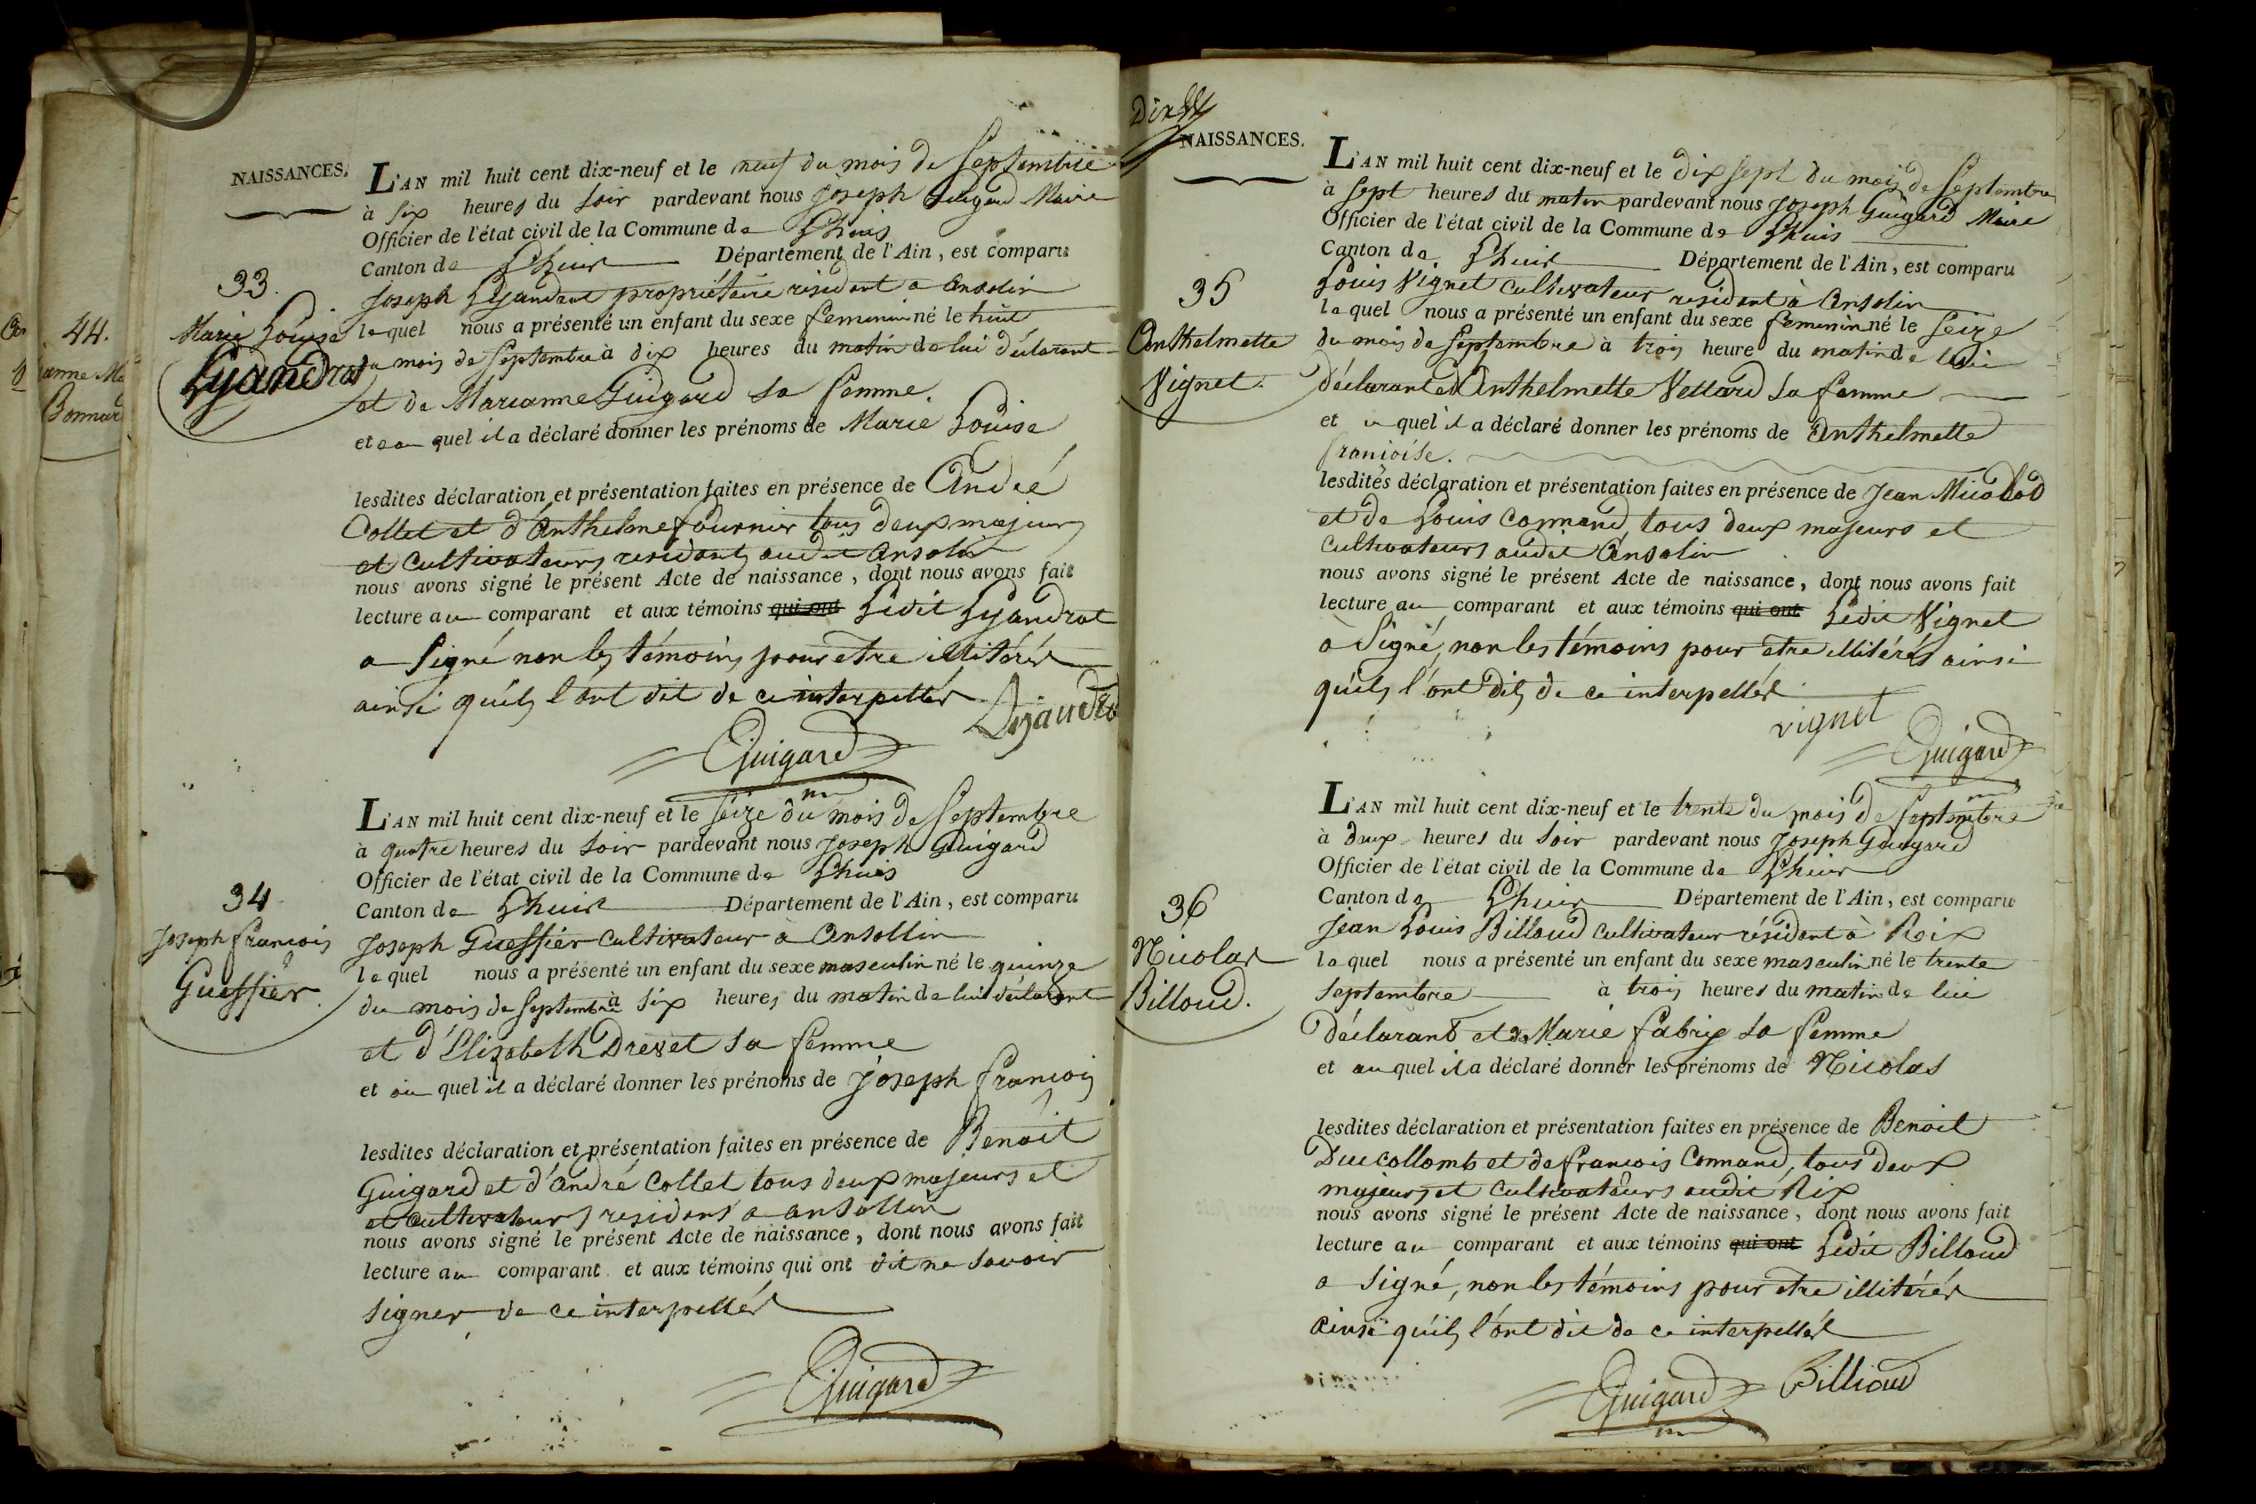 44.
NAISSANCES.
33.
Marie Louise
Lyandrat
L'AN mil huit cent dix-neuf et le neuf du mois de Septembre
à six heures du soir pardevant nous Joseph Guigard Maire
Officier de l'état civil de la Commune de Lhuis
Canton de Lhuis Département de l'Ain, est comparu
Joseph Lyandrat propriétaire résidant a Ansolin
lequel nous a présenté un enfant du sexe feminin né le huit
du mois de Septembre à dix heures du matin de lui déclarant
et de Marianne Guigard sa femme.
et au quel il a déclaré donner les prénoms de Marie Louise
lesdites déclaration et présentation faites en présence de André
Collet et d'Anthelme fournier tous deux majeurs
et cultivateurs residants audit Ansolin
nous avons signé le présent Acte de naissance, dont nous avons fait
lecture au comparant et aux témoins qui ont Ledit Lyandrat
a Signé non les témoins pour etre illitérés
ainsi quils l'ont dit de ce interpellés
Lyandrat
Guigard
34
Joseph francois
Gueffier.
L'AN mil huit cent dix-neuf et le seize du mois de Septembre
à quatre heures du soir pardevant nous Joseph Guigard
Officier de l'état civil de la Commune de Lhuis
Canton de Lhuis Département de l'Ain, est comparu
Joseph Gueffier cultivateur a Ansollin
lequel nous a présenté un enfant du sexe masculin né le quinze
du mois de Septembre à six heures du matin de lui déclarant
et d'Elizabeth Drevet sa femme
et au quel il a déclaré donner les prénoms de Joseph francois
lesdites déclaration et présentation faites en présence de Benoit
Guigard et d'André Collet tous deux majeurs et
et cultivateurs residans a ansollin
nous avons signé le présent Acte de naissance, dont nous avons fait
lecture au comparant et aux témoins qui ont dit ne savoir
signer de ce interpellés
Guigard
NAISSANCES.
35
Anthelmette
Vignet.
L'AN mil huit cent dix-neuf et le dix sept du mois de Septembre
à sept heures du matin pardevant nous Joseph Guigard Maire
Officier de l'état civil de la Commune de Lhuis
Canton de Lhuis Département de l'Ain, est comparu
Louis Vignet cultivateur residant à Ansolin
lequel nous a présenté un enfant du sexe feminin né le seize
du mois de Septembre à trois heure du matin de lui
déclarant et d'Anthelmette Vettard sa femme
et au quel il a déclaré donner les prénoms de Anthelmette
francoise.
lesdites déclaration et présentation faites en présence de Jean Micollod
et de Louis Connand, tous deux majeurs et
cultivateurs audit Ansolin
nous avons signé le présent Acte de naissance, dont nous avons fait
lecture au comparant et aux témoins qui ont Ledit Vignet
a Signé, non les témoins pour etre illitérés ainsi
quils l'ont dit de ce interpellés
vignet
Guigard
36
Nicolas
Billoud.
L'AN mil huit cent dix-neuf et le trente du mois de Septembre
à deux heures du soir pardevant nous Joseph Guigard
Officier de l'état civil de la Commune de Lhuis
Canton de Lhuis Département de l'Ain, est comparu
Jean Louis Billoud cultivateur résidant à Rix
lequel nous a présenté un enfant du sexe masculin né le trente
Septembre à trois heures du matin de lui
déclarant et de Marie fabrix sa femme
et au quel il a déclaré donner les prénoms de Nicolas
lesdites déclaration et présentation faites en présence de Benoit
Ducollomb et de francois Connand, tous deux
majeurs et cultivateurs audit Rix
nous avons signé le présent Acte de naissance, dont nous avons fait
lecture au comparant et aux témoins qui ont Ledit Billoud
a signé, non les témoins pour etre illitérés
ainsi quils l'ont dit de ce interpellés
Guigard Billioud